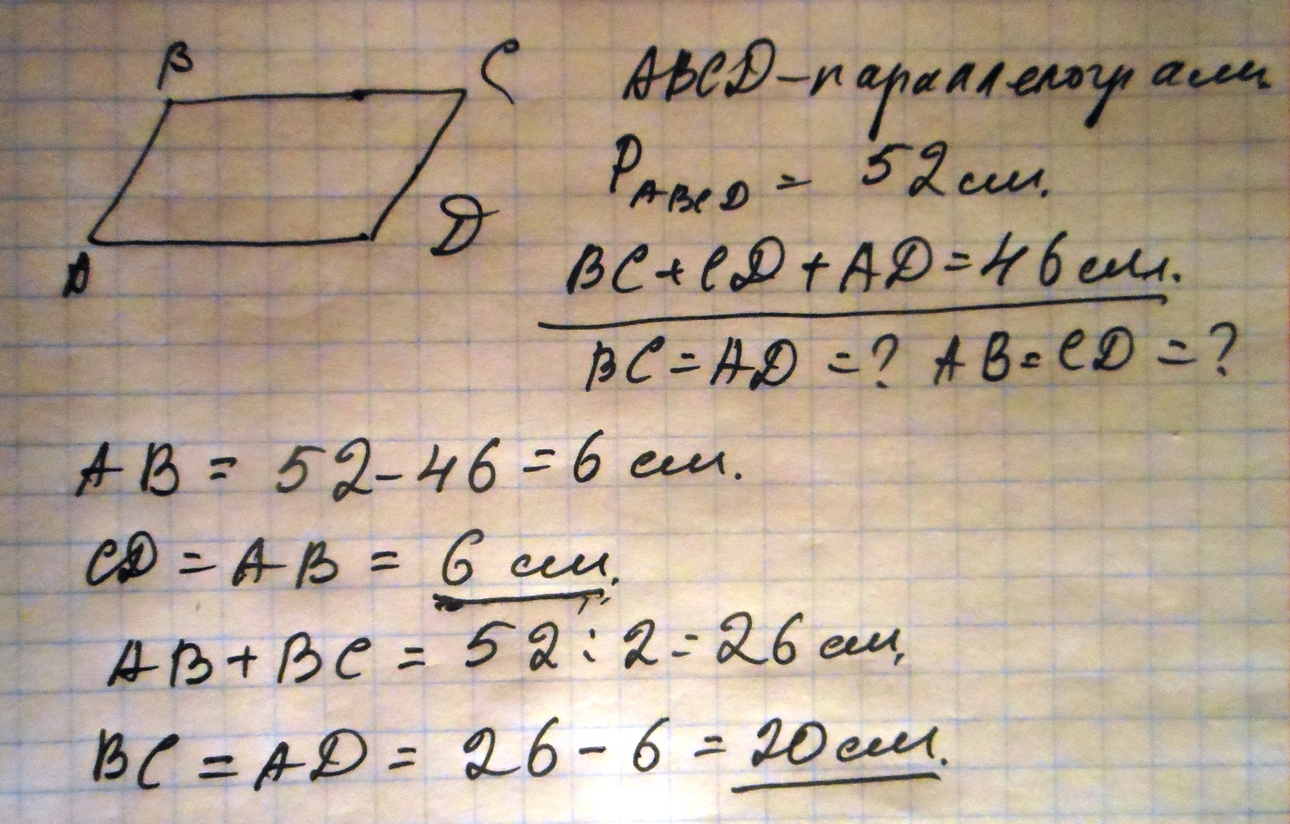 B C
A D
ABCD - параллелограмм
P ABCD = 52 см.
BC + CD + AD = 46 см.
BC = AD = ? AB = CD = ?
AB = 52 - 46 = 6 см.
CD = AB = 6 см.
AB + BC = 52 : 2 = 26 см,
BC = AD = 26 - 6 = 20 см.